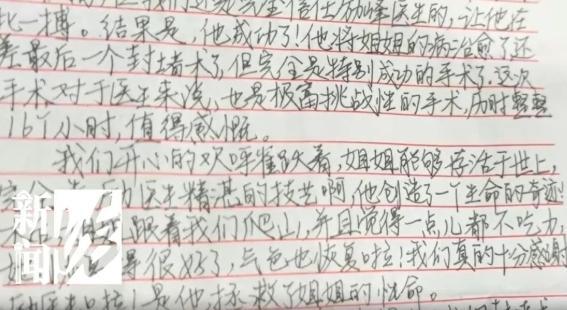 我们是完全信任励峰医生的,让他在
此一搏。结果是,他成功了!他将姐姐的病治愈了还
差最后一个封堵术了,但完全是特别成功的手术了,这次
手术对于医生来说,也是极富挑战性的手术,历时整整
16个小时,值得感慨。
我们开心的欢呼雀跃着,姐姐能够存活于世上,
医生精湛的技艺啊,他创造了一个生命的奇迹!
跟着我们爬山,并且觉得一点儿都不吃力,
得很好了,气色也恢复啦!我们真的十分感谢
是他,拯救了姐姐的性命。
新闻